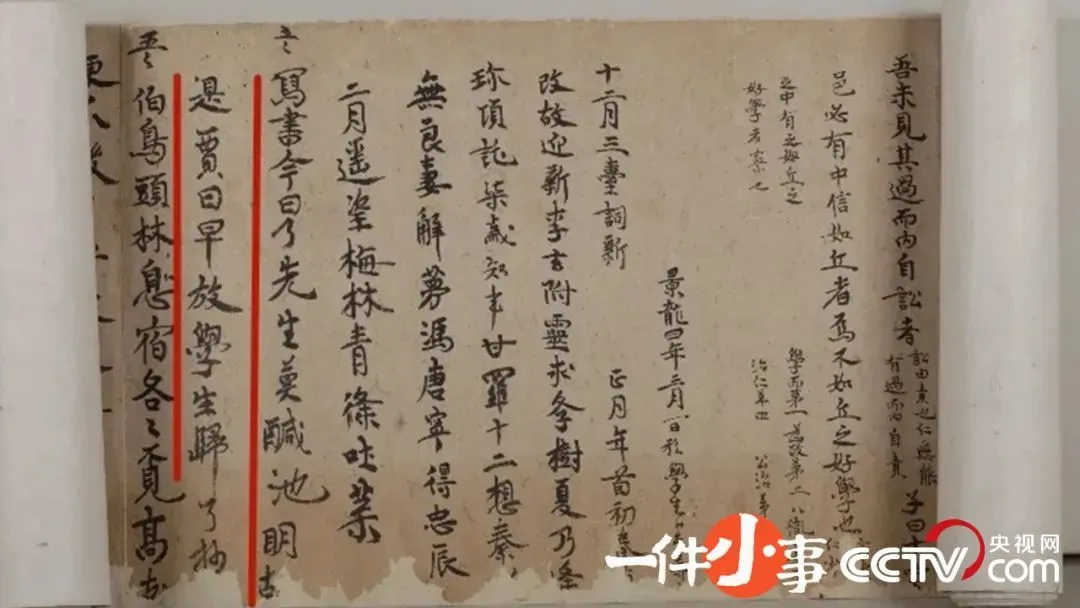 吾未見其過而內自訟者
訟由責也仁無能
有過而自責
子曰十
邑必有中信如丘者焉不如丘之好學也
之中有之如丘之
好學者寡也
學而第一 為政第二 八佾
治仁第四 公冶第
景龍四年三月一日私學生
十二月三臺詞新
正月年首初春
改故迎新李玄附靈求學樹夏乃逢
珎項託柒歲知事甘羅十二想秦
無良妻解夢馮唐寧得忠辰
二月遥望梅林青條吐葉
寫書今日了先生莫醎池明
是賈日早放學生歸 了抄
伯鳥頭林息宿各々覓高
一件小事 CCTV.com 央视网